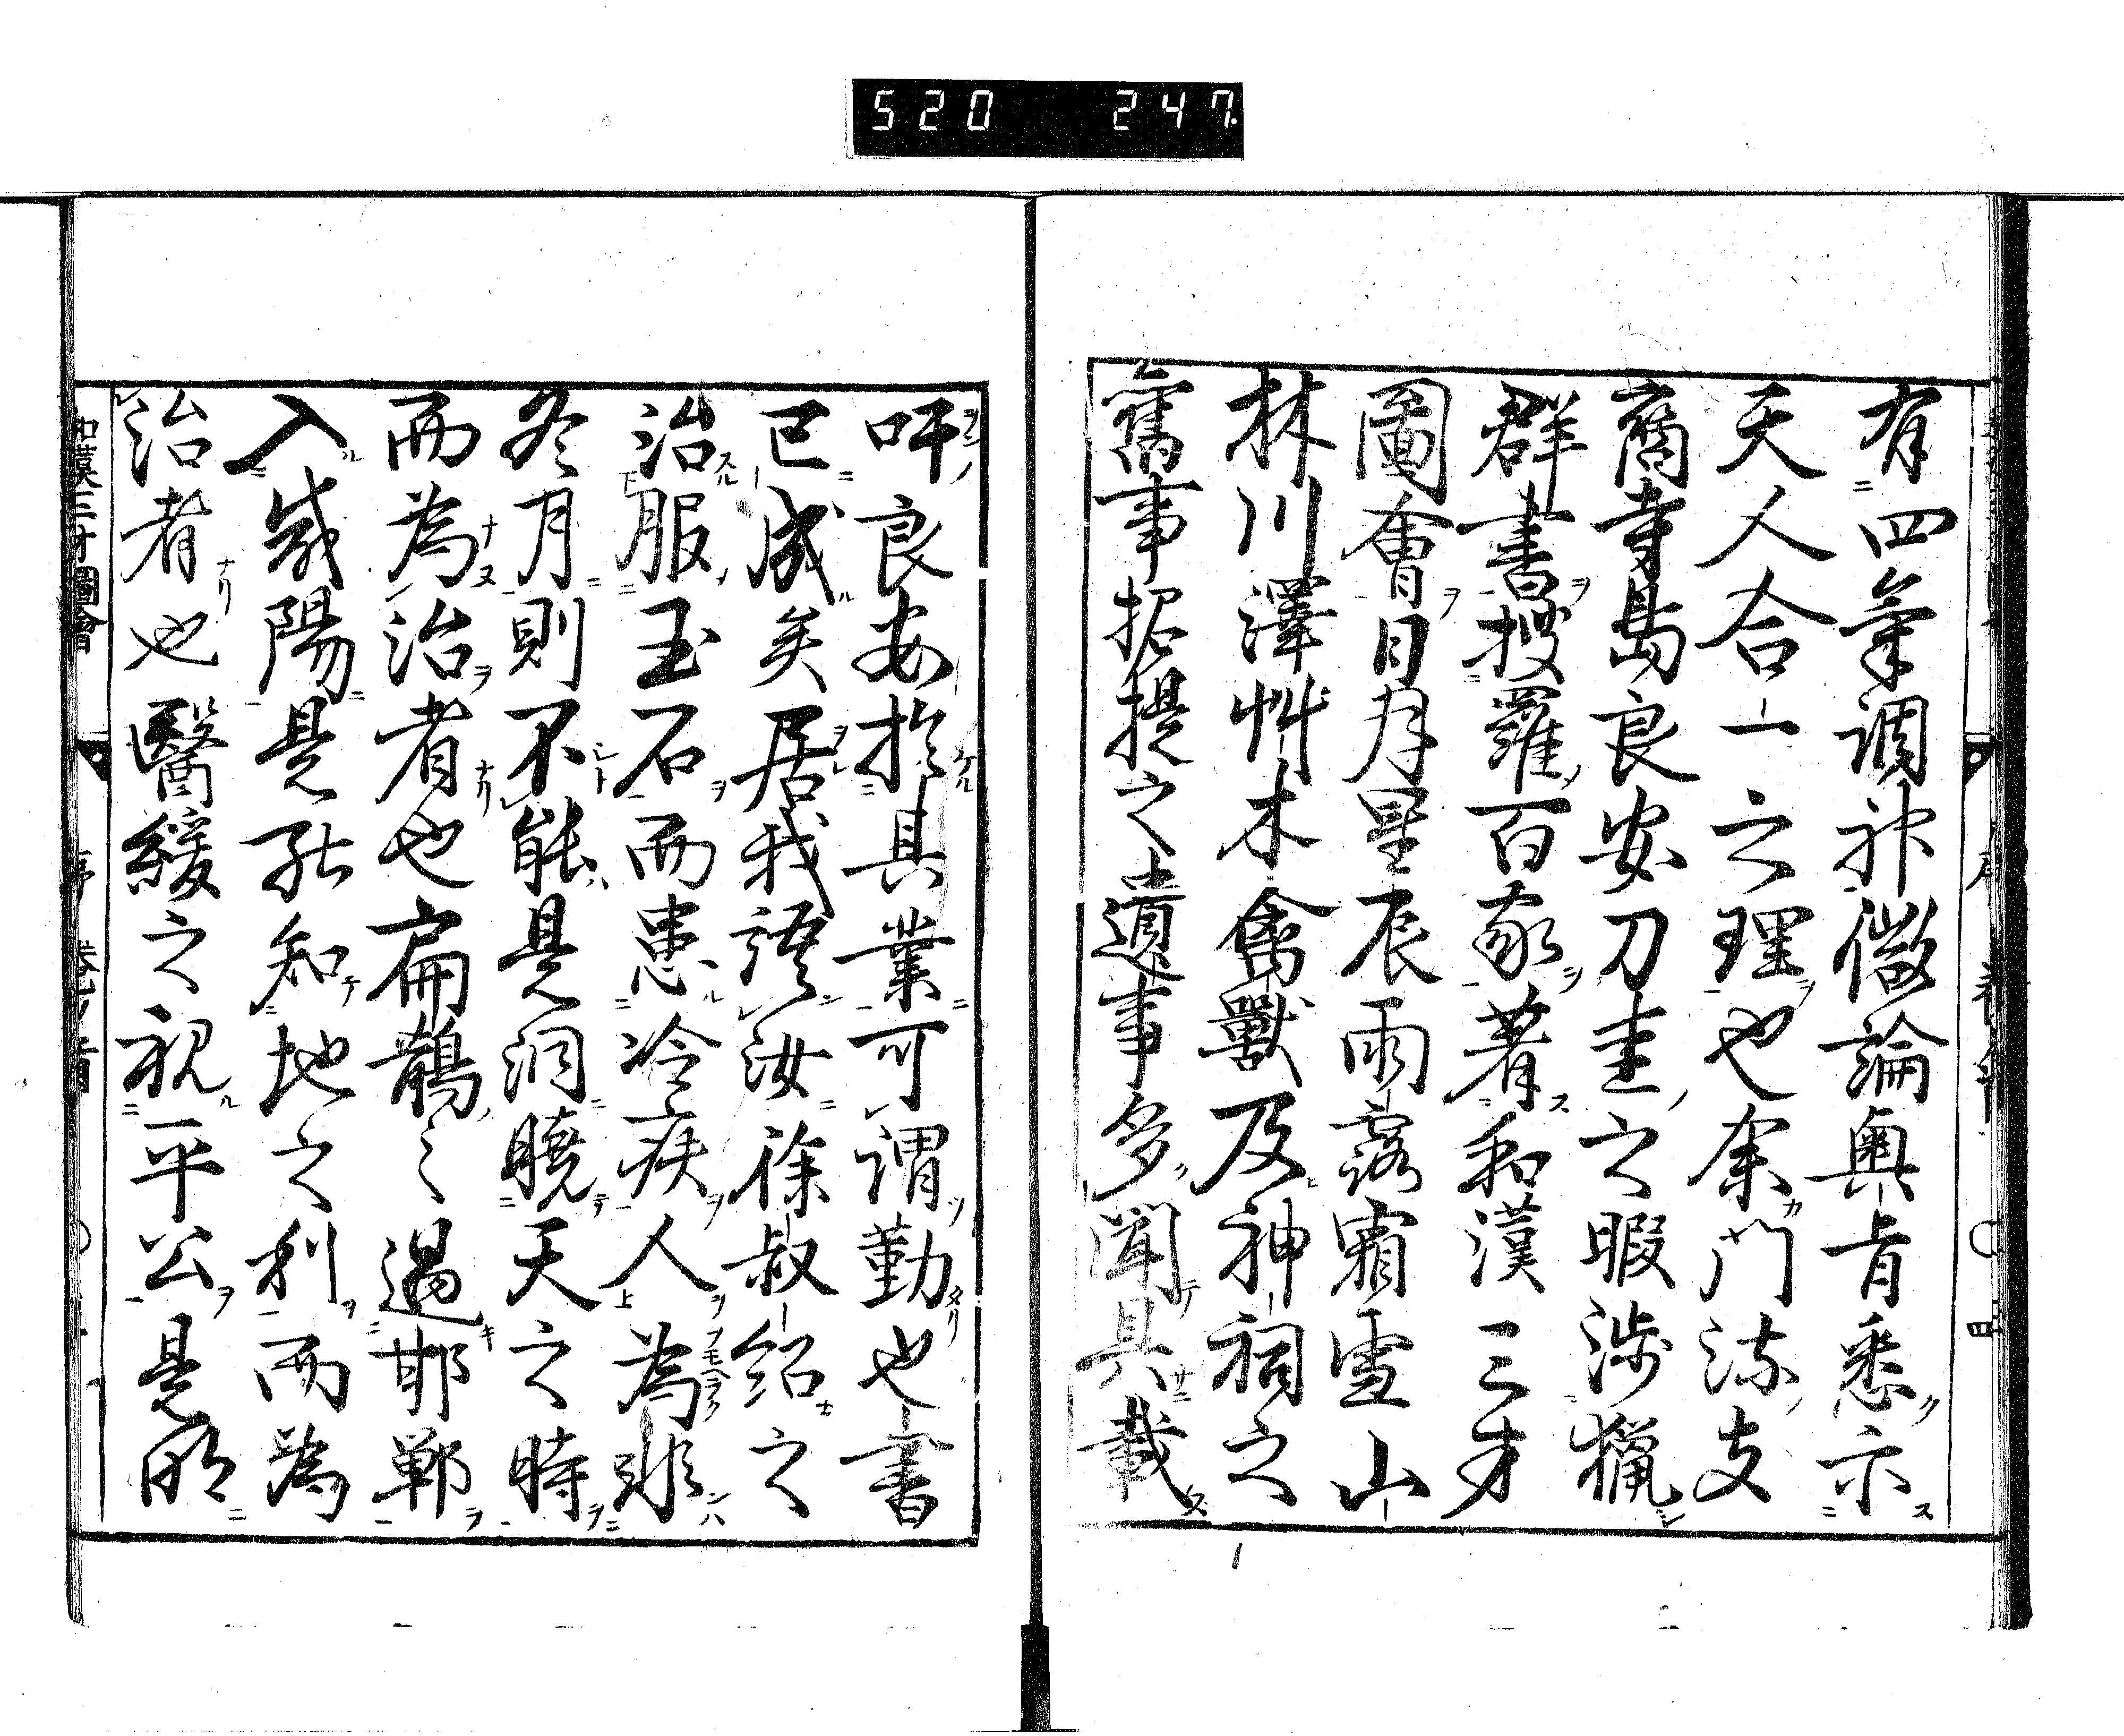 520 247.
有四氣調神微論奧旨悉示
天人合一之理也余門流支
裔寺島良安刀圭之暇渉獵
群書搜羅百家著和漢三才
圖會日月星辰雨露霜雪山
林川澤艸木禽獸及神祠之
舊事招提之遺事多聞具載
吁良安於其業可謂勤也書
已成矣居我語汝徐叔紹之
治服玉石而患冷疾人為非
冬月則不能是洞曉天之時
而為治者也扁鵲之過邯鄲
入咸陽是能知地之利而為
治者也醫緩之視平公是明
和漢三才圖會 序 卷之首